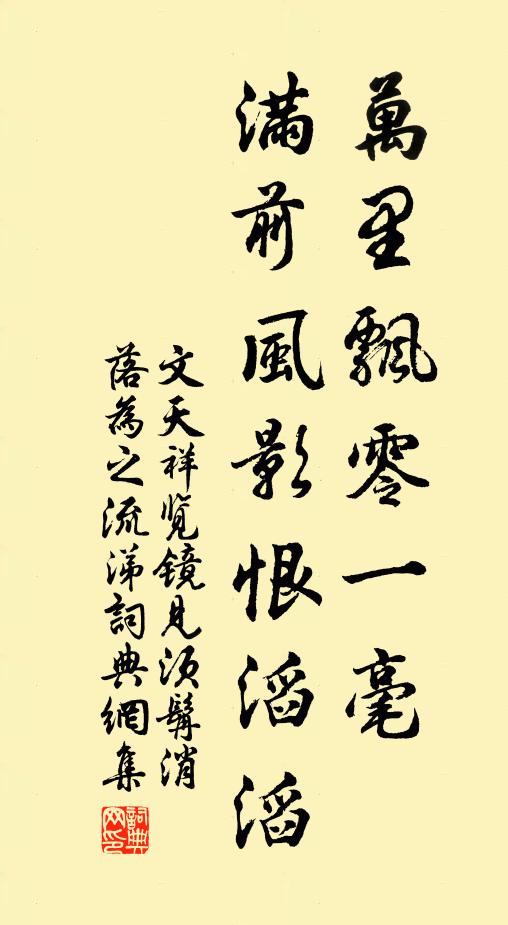 萬里飄零一毫
滿前風影恨滔滔
文天祥覽鏡見须髯消
落為之流涕詞典網集
詞典
网印